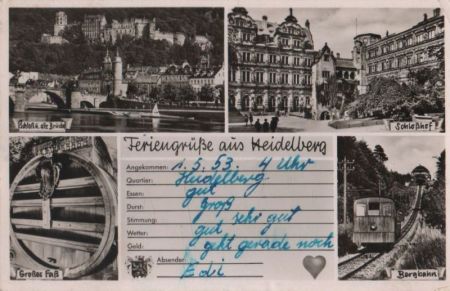 Schloß u. alte Brücke
Schloßhof
Feriengrüße aus Heidelberg
Angekommen: 1.5.53. 4 Uhr
Quartier: Heidelberg
Essen: gut
Durst: groß
Stimmung: gut, sehr gut
Wetter: gut
Geld: geht gerade noch
Absender: Edi
Großes Faß
Bergbahn